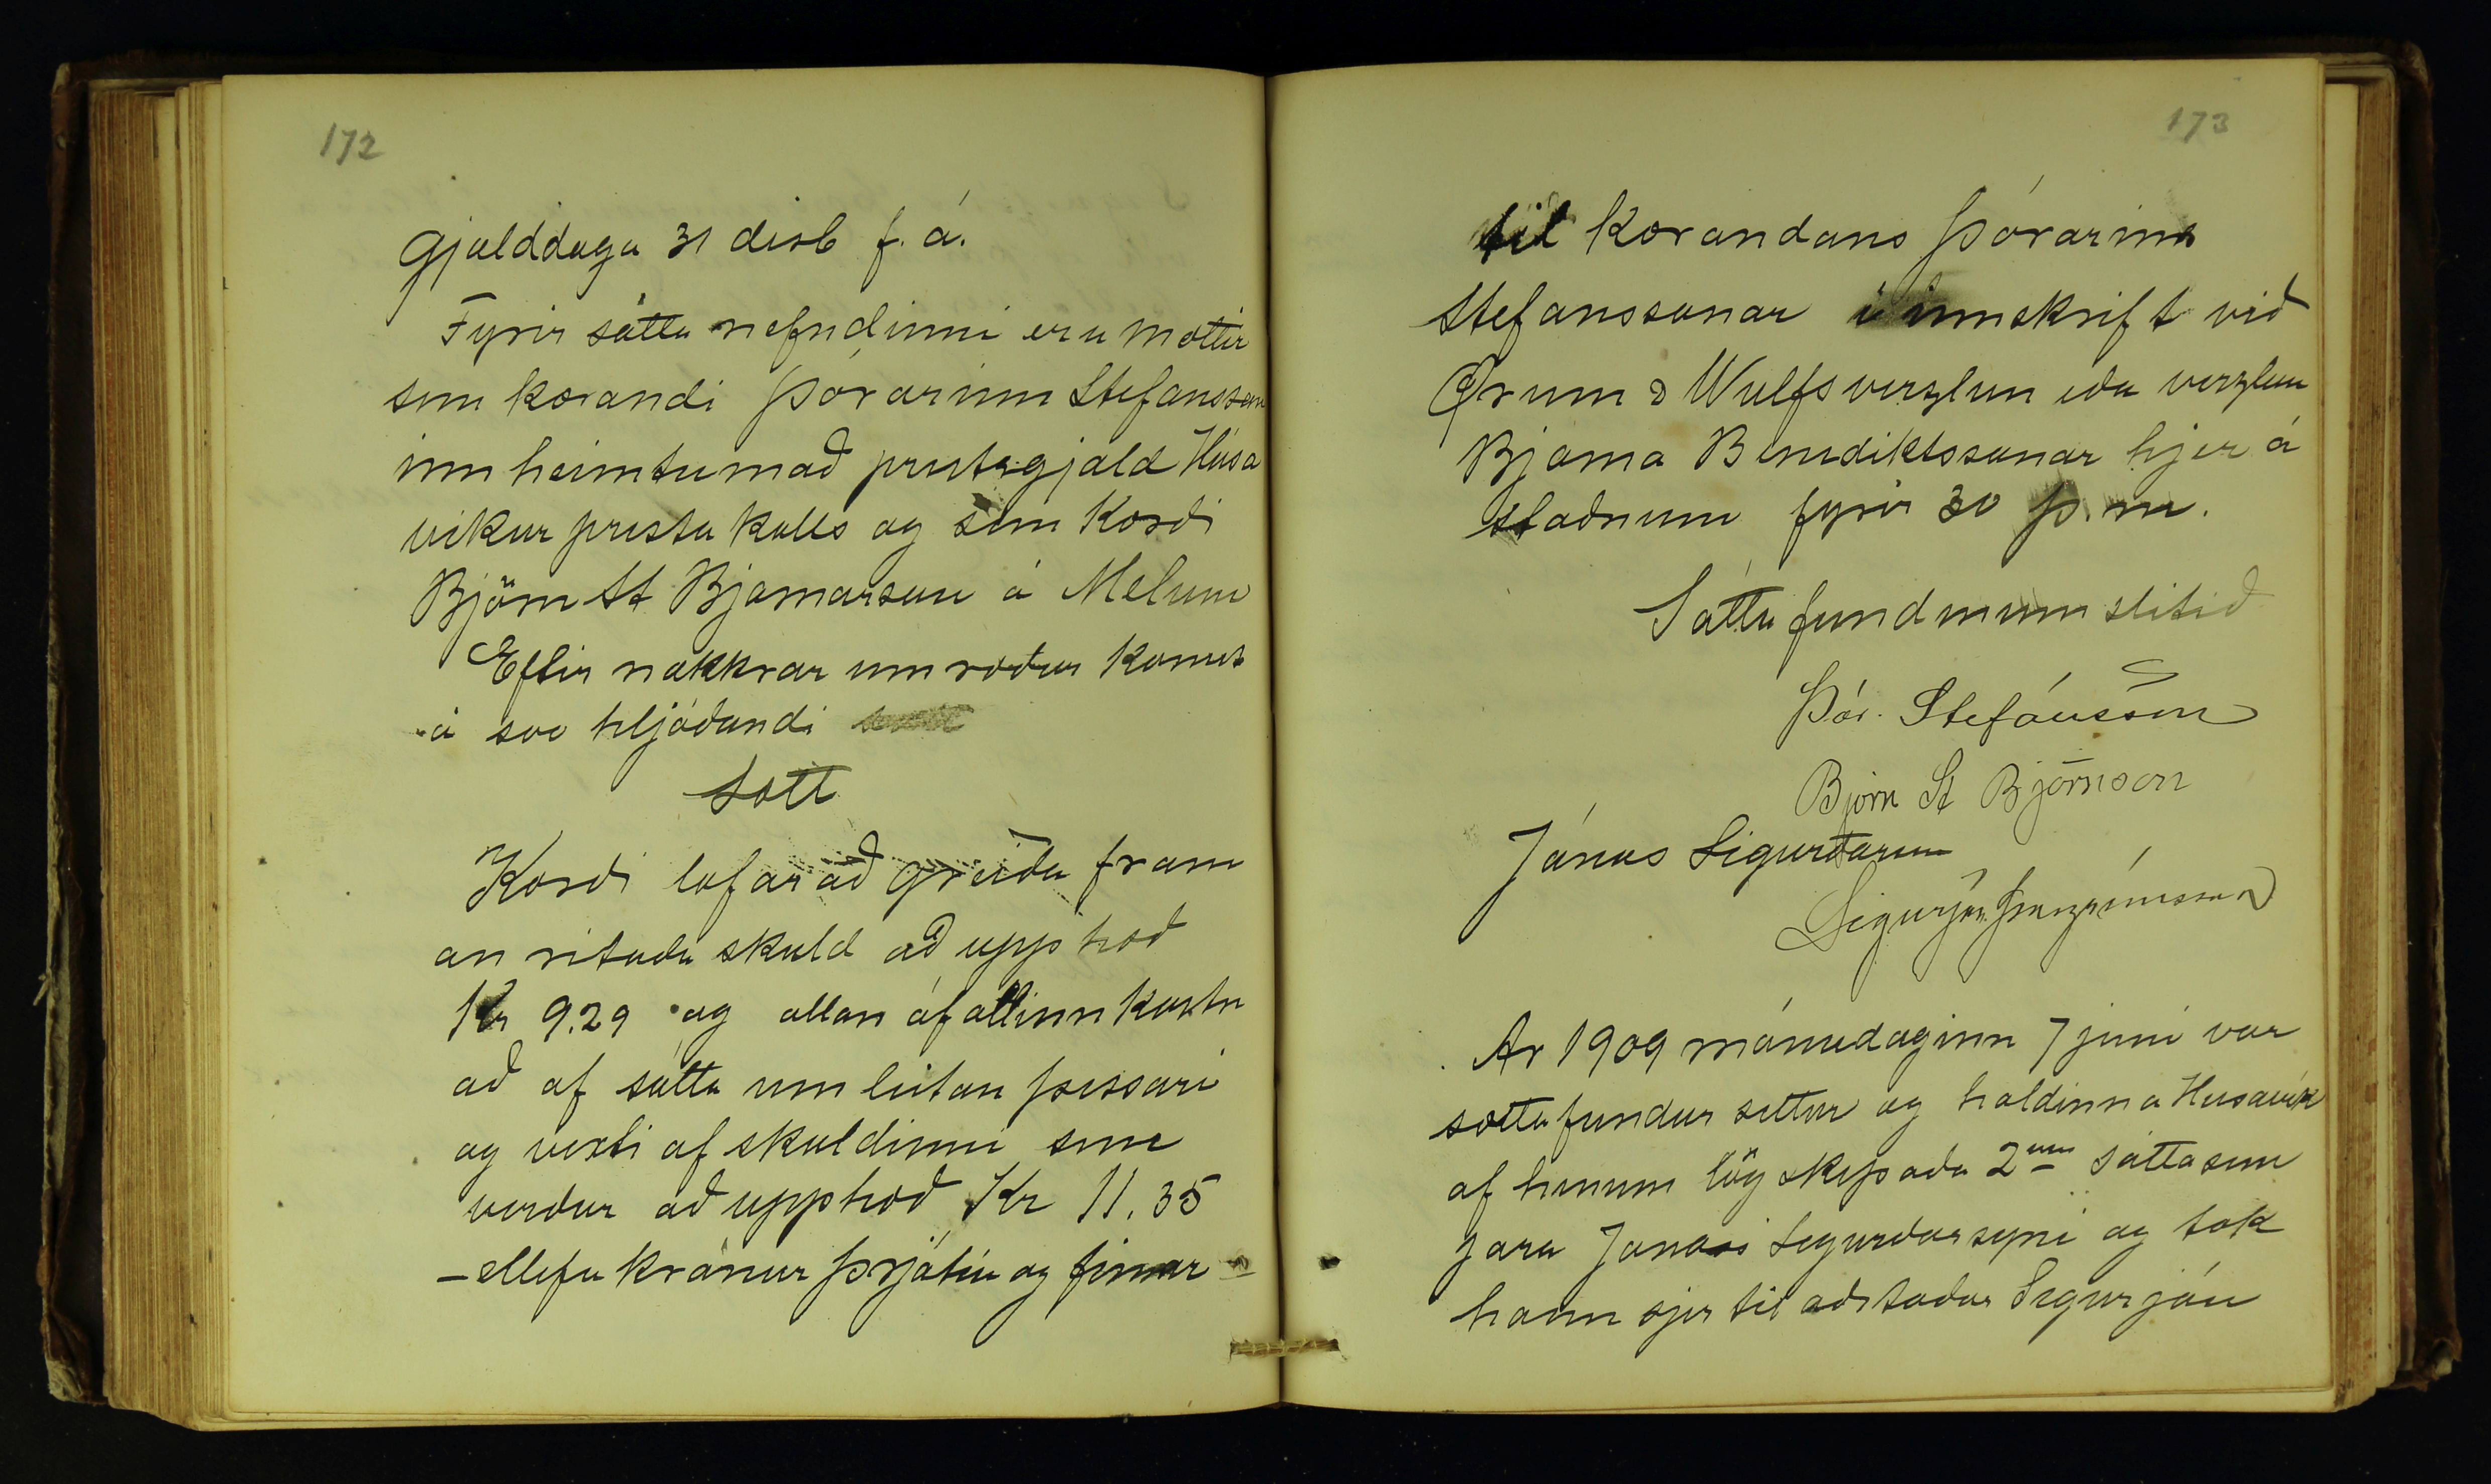 172
Gjalddaga 31 desb f. á.
Fyrir sátta nefndinni eru mættir
sem kærandi Þórarinn Stefansson
innheimtumað prestsgjald Húsa
víkur presta kalls og sem Kærði
Björn St Bjarnarson á Melum
Eftir nokkrar umræður komst
á svo hljóðandi
Sætt
Kærði lofar að greiða fram
an ritaða skuld að upp hæð
Kr 9.29 og allan áfallinn kostn
að af sátta umleitan þessari
og vexti af skuldinni sem
verður að upphæð Kr 11.35
– ellefu krónur þrjátíu og fimm ar –
173
til kærandans Þórarins
Stefanssonar í innskrift við
Ørum & Wulfs verzlun eða verzlun
Bjarna Benediktssonar hjer á
staðnum fyrir 30 þ. m.
Sátta fundinum slitið
Þór. Stefánsson
Björn St Björnson
Jónas Sigurðarson
Sigurjón Þorgrímsson
Ar 1909 mánudaginn 7 júni var
sættafundur settur og haldinn a Husavík
af hinum lög skipaða 2um sáttasem
jara Jonasi Sigurðarsyni og tok
hann sjer til aðstoðar Sigurjón